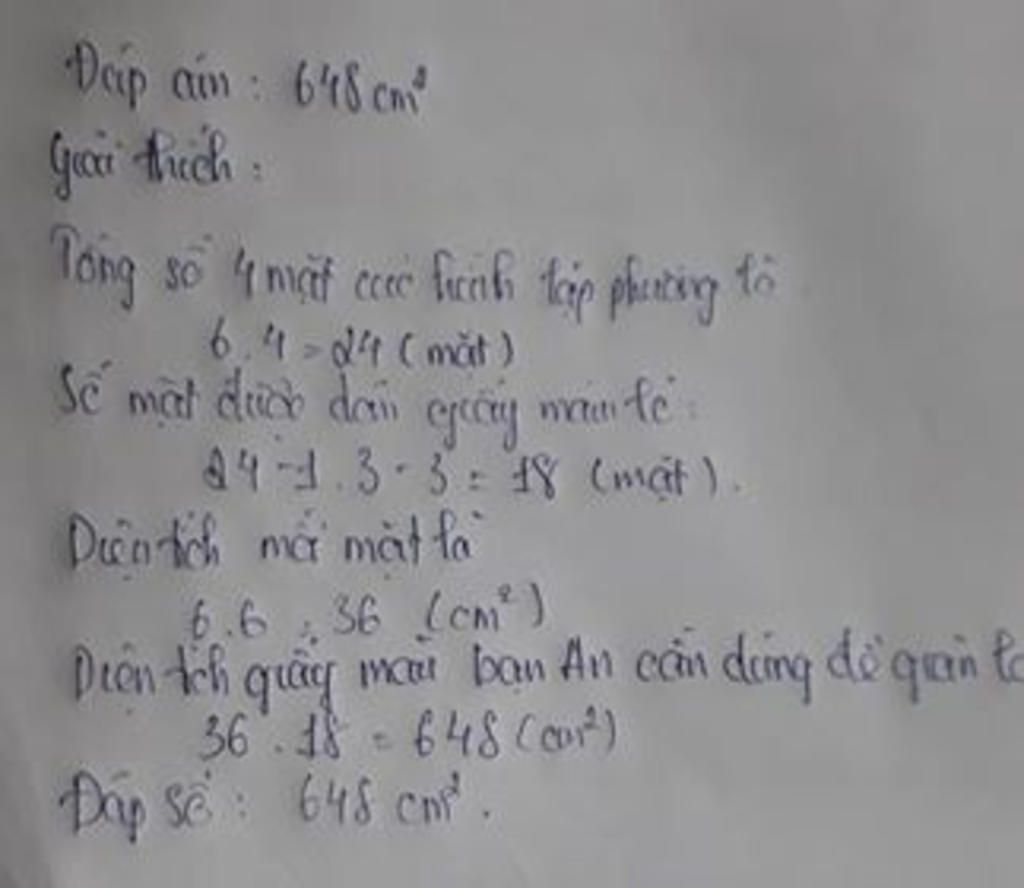 Đáp án : 648 cm²
Giải thích :
Tổng số 4 mặt các hình lập phương là
6 . 4 = 24 (mặt)
Số mặt được dán giấy màu là :
24 - 1 . 3 - 3 = 18 (mặt).
Diện tích mỗi mặt là
6 . 6 = 36 (cm²)
Diện tích giấy màu bạn An cần dùng để
36 . 18 = 648 (cm²)
Đáp số : 648 cm².